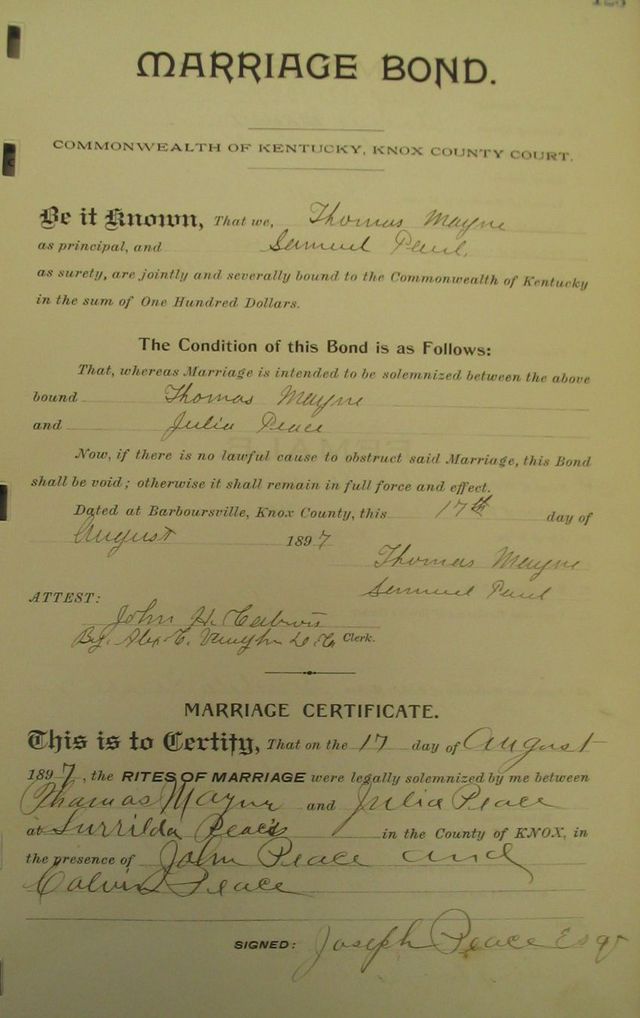 MARRIAGE BOND.
COMMONWEALTH OF KENTUCKY, KNOX COUNTY COURT.
Be it Known, That we, Thomas Mayne
as principal, and Samuel Paul,
as surety, are jointly and severally bound to the Commonwealth of Kentucky
in the sum of One Hundred Dollars.
The Condition of this Bond is as Follows:
That, whereas Marriage is intended to be solemnized between the above
bound Thomas Mayne
and Julia Peace
Now, if there is no lawful cause to obstruct said Marriage, this Bond
shall be void; otherwise it shall remain in full force and effect.
Dated at Barboursville, Knox County, this 17th day of
August 1897
Thomas Mayne
Samuel Paul
ATTEST:
John H.
By. Alex C. D. C. Clerk.
MARRIAGE CERTIFICATE.
This is to Certify, That on the 17 day of August
1897, the RITES OF MARRIAGE were legally solemnized by me between
Thomas Mayne and Julia Peace
at Surrilda Peace's in the County of KNOX, in
the presence of John Peace and
Calvin Peace
SIGNED: Joseph Peace Esqr